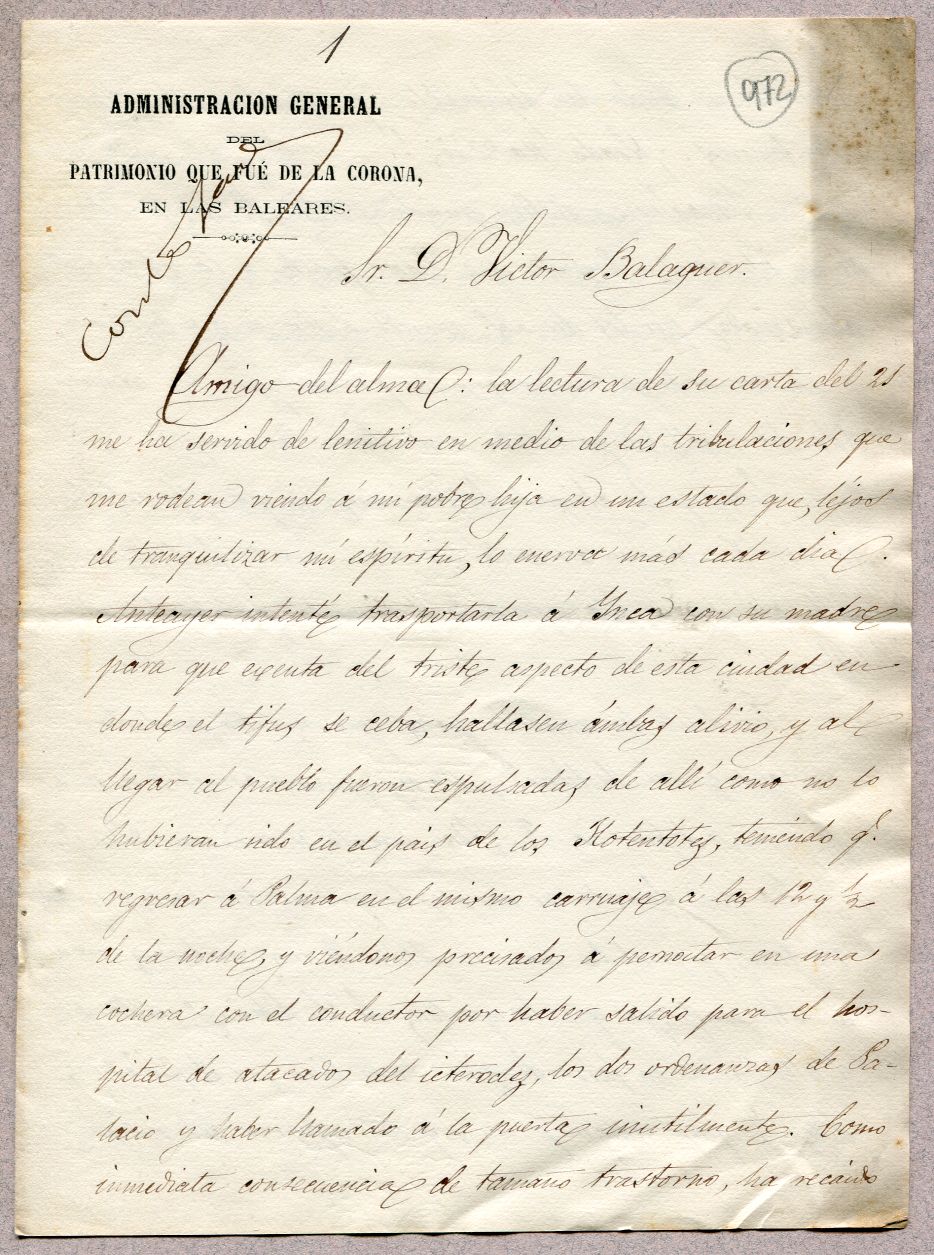 1
972
ADMINISTRACION GENERAL
DEL
PATRIMONIO QUE FUÉ DE LA CORONA,
EN LAS BALEARES.
Sr. D. Victor Balaguer.
Amigo del alma: la lectura de su carta del 21
me ha servido de lenitivo en medio de las tribulaciones que
me rodean viendo á mi pobre hija en un estado que, léjos
de tranquilizar mi espíritu, lo enerva más cada dia.
Anteayer intenté trasportarla á Ynca con su madre
para que exenta del triste aspecto de esta ciudad en
donde el tifus se ceba, hallasen ámbas alivio, y al
llegar al pueblo fueron espulsadas de allí como no lo
hubieran sido en el pais de los Hotentotes, teniendo q.
regresar á Palma en el mismo carruaje á las 12 y ½
de la noche, y viéndonos precisados á pernoctar en una
cochera con el conductor por haber salido para el hos-
pital de atacados del icterodes, los dos ordenanzas de Pa-
lacio y haber llamado á la puerta inutilmente. Como
inmediata consecuencia de tamaño trastorno, ha recaido